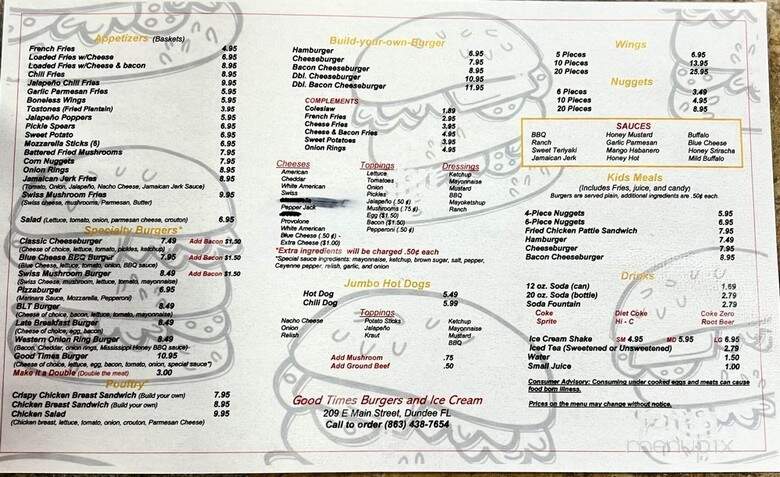 Appetizers (Baskets)
French Fries 4.95
Loaded Fries w/Cheese 6.95
Loaded Fries w/Cheese & bacon 8.95
Chili Fries 8.95
Jalapeño Chili Fries 9.95
Garlic Parmesan Fries 5.95
Boneless Wings 5.95
Tostones (Fried Plantain) 3.95
Jalapeño Poppers 5.95
Pickle Spears 6.95
Sweet Potato 6.95
Mozzarella Sticks (6) 6.95
Battered Fried Mushrooms 7.95
Corn Nuggets 7.95
Onion Rings 8.95
Jamaican Jerk Fries 8.95
(Tomato, Onion, Jalapeño, Nacho Cheese, Jamaican Jerk Sauce)
Swiss Mushroom Fries 9.95
(Swiss cheese, mushrooms, Parmesan, Butter)
Salad (Lettuce, tomato, onion, parmesan cheese, crouton) 6.95
Specialty Burgers*
Classic Cheeseburger 7.49 Add Bacon $1.50
(Cheese of choice, lettuce, tomato, pickles, ketchup)
Blue Cheese BBQ Burger 7.95 Add Bacon $1.50
(Blue Cheese, lettuce, tomato, onion, BBQ sauce)
Swiss Mushroom Burger 8.49 Add Bacon $1.50
(Swiss Cheese, mushroom, lettuce, tomato, mayonnaise)
Pizzaburger 6.95
(Marinara Sauce, Mozzarella, Pepperoni)
BLT Burger 8.49
(Cheese of choice, bacon, lettuce, tomato, mayonnaise)
Late Breakfast Burger 8.49
(Cheese of choice, egg, bacon)
Western Onion Ring Burger 8.49
(Bacon, Cheddar, onion rings, Mississippi Honey BBQ sauce)
Good Times Burger 10.95
(Cheese of choice, lettuce, egg, bacon, tomato, onion, special sauce*)
Make it a Double (Double the meat) 3.00
Poultry
Crispy Chicken Breast Sandwich (Build your own) 7.95
Chicken Breast Sandwich (Build your own) 8.95
Chicken Salad 9.95
(Chicken breast, lettuce, tomato, onion, crouton, Parmesan Cheese)
Build-your-own-Burger
Hamburger 6.95
Cheeseburger 7.95
Bacon Cheeseburger 8.95
Dbl. Cheeseburger 10.95
Dbl. Bacon Cheeseburger 11.95
COMPLEMENTS
Coleslaw 1.89
French Fries 2.95
Cheese Fries 3.95
Cheese & Bacon Fries 4.95
Sweet Potatoes 3.95
Onion Rings 4.95
Cheeses
American
Cheddar
White American
Swiss
Pepper Jack
Provolone
White American
Blue Cheese (.50 ¢) -
Extra Cheese ($1.00)
Toppings
Lettuce
Tomatoes
Onion
Pickles
Jalapeño (.50 ¢)
Mushrooms (.75 ¢)
Egg ($1.50)
Bacon ($1.50)
Pepperoni (.50 ¢)
Dressings
Ketchup
Mayonnaise
Mustard
BBQ
Mayoketchup
Ranch
*Extra ingredients will be charged .50¢ each
*Special sauce ingredients: mayonnaise, ketchup, brown sugar, salt, pepper,
Cayenne pepper, relish, garlic, and onion
Jumbo Hot Dogs
Hot Dog 5.49
Chili Dog 5.99
Toppings
Nacho Cheese Potato Sticks Ketchup
Onion Jalapeño Mayonnaise
Relish Kraut Mustard
BBQ
Add Mushroom .75
Add Ground Beef .50
Good Times Burgers and Ice Cream
209 E Main Street, Dundee FL
Call to order (863) 438-7654
Wings
5 Pieces 6.95
10 Pieces 13.95
20 Pieces 25.95
Nuggets
6 Pieces 3.49
10 Pieces 4.95
20 Pieces 8.95
SAUCES
BBQ Honey Mustard Buffalo
Ranch Garlic Parmesan Blue Cheese
Sweet Teriyaki Mango Habanero Honey Sriracha
Jamaican Jerk Honey Hot Mild Buffalo
Kids Meals
(Includes Fries, juice, and candy)
Burgers are served plain, additional ingredients are .50¢ each.
4-Piece Nuggets 5.95
6-Piece Nuggets 6.95
Fried Chicken Pattie Sandwich 7.95
Hamburger 7.49
Cheeseburger 7.95
Bacon Cheeseburger 8.95
Drinks
12 oz. Soda (can) 1.69
20 oz. Soda (bottle) 2.79
Soda Fountain 2.79
Coke Diet Coke Coke Zero
Sprite Hi - C Root Beer
Ice Cream Shake SM 4.95 MD 5.95 LG 6.95
Iced Tea (Sweetened or Unsweetened) 2.79
Water 1.50
Small Juice 1.00
Consumer Advisory: Consuming under cooked eggs and meats can cause
food born illness.
Prices on the menu may change without notice.
menupix